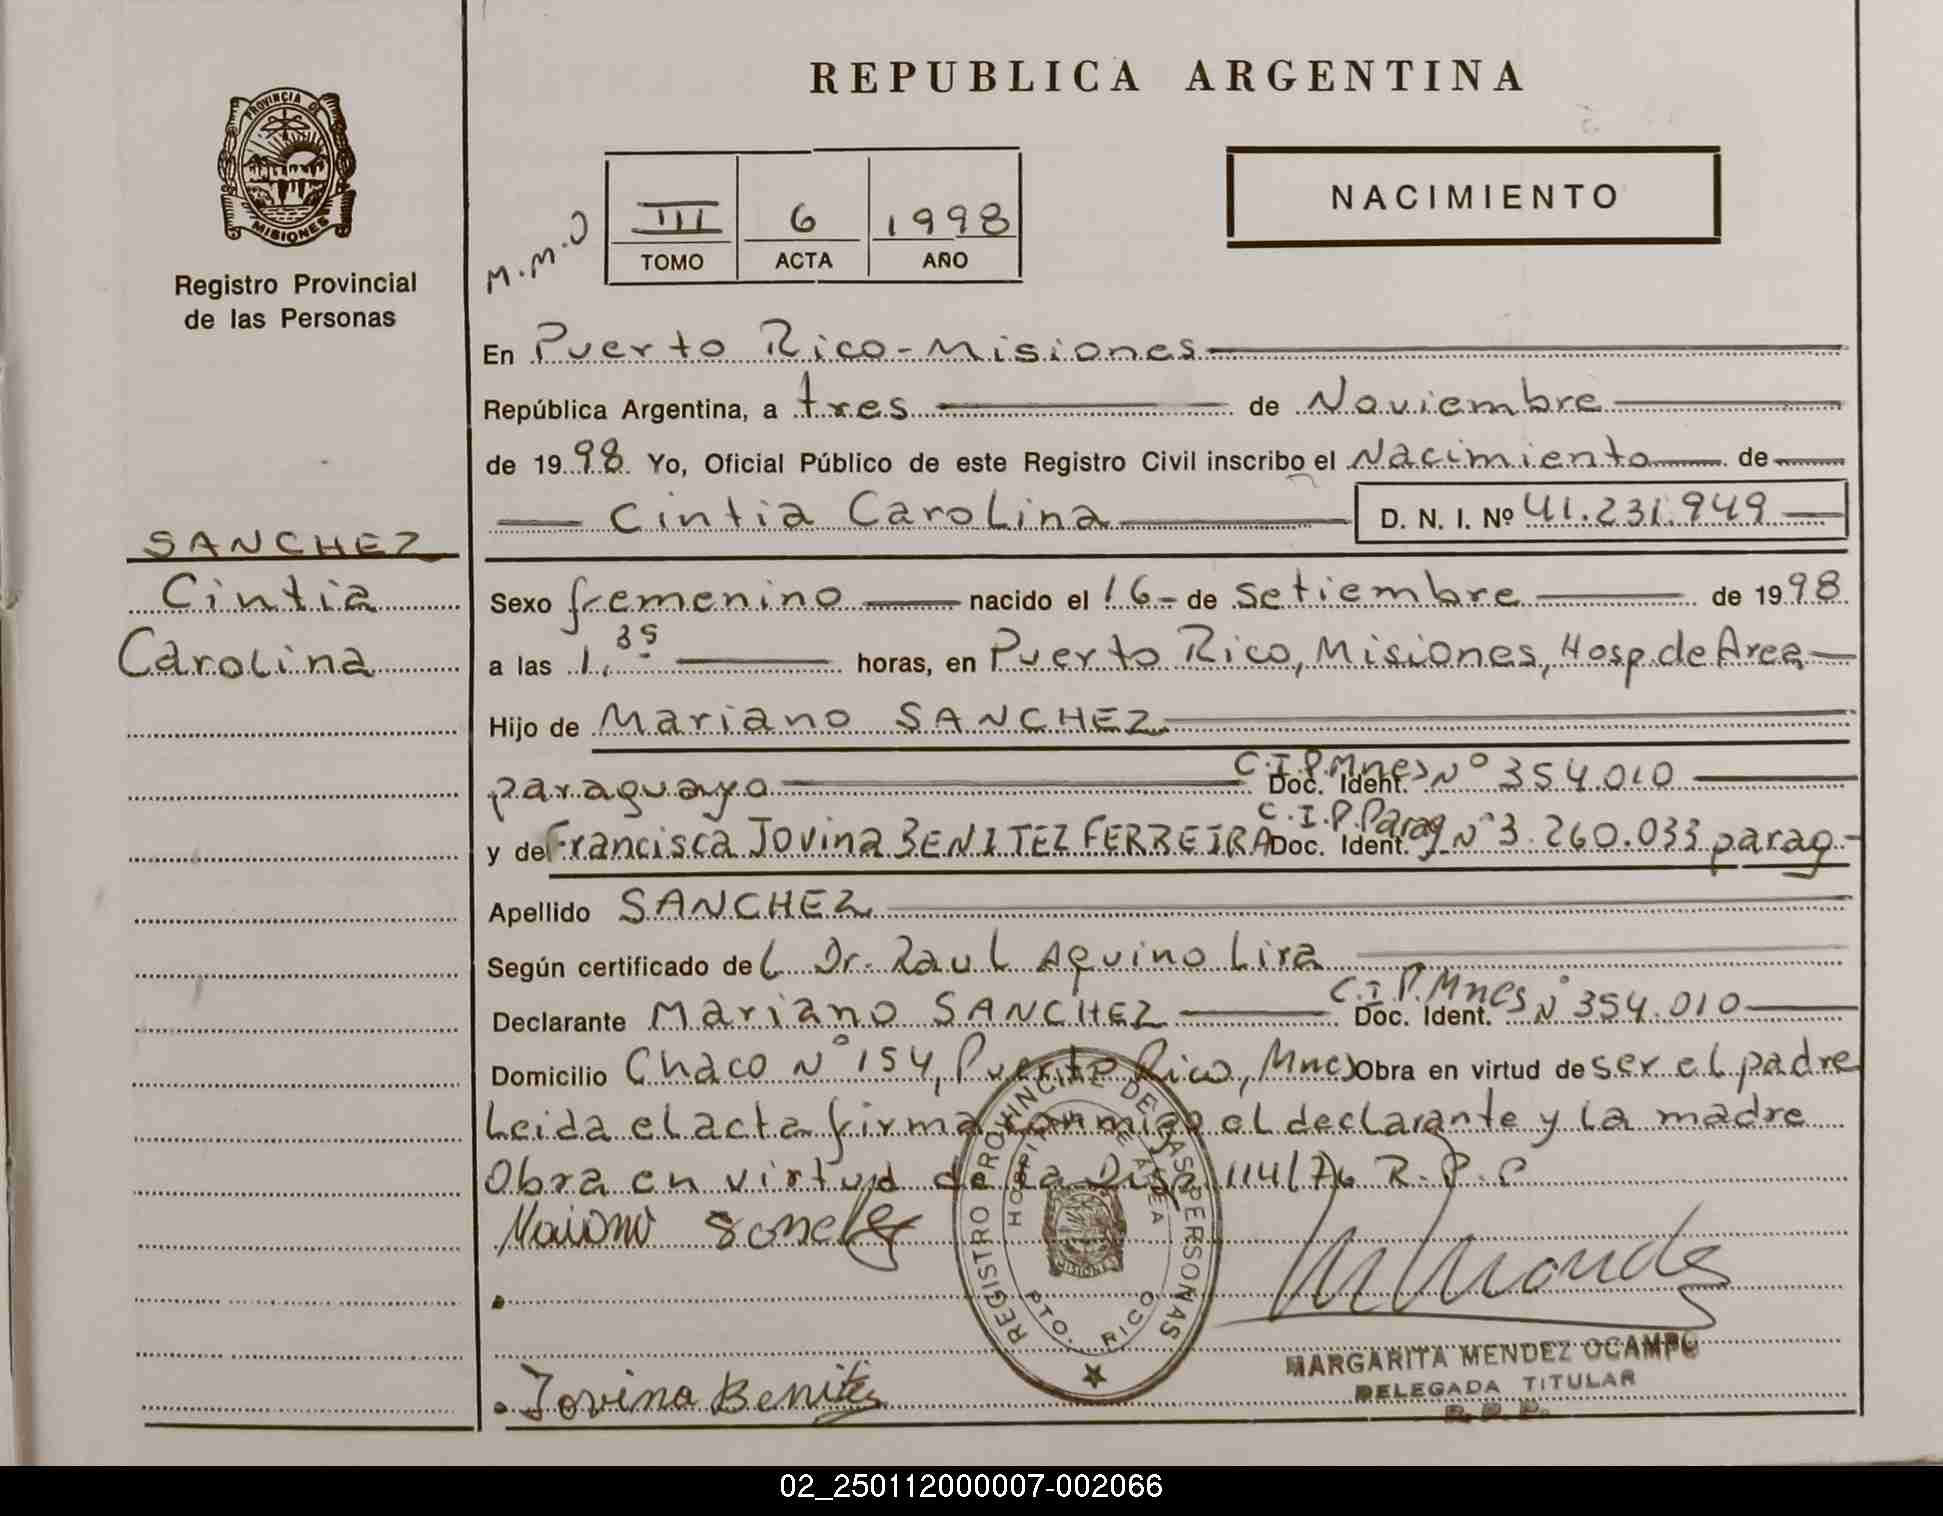 REPUBLICA ARGENTINA
PROVINCIA DE
MISIONES
Registro Provincial
de las Personas
M.M.O
III 6 1998
TOMO ACTA AÑO
NACIMIENTO
En Puerto Rico - Misiones
República Argentina, a tres de Noviembre
de 1998 Yo, Oficial Público de este Registro Civil inscribo el Nacimiento de
Cintia Carolina D. N. I. Nº 41.231.949
SANCHEZ
Cintia
Carolina
Sexo femenino nacido el 16- de setiembre de 1998
a las 1,35 horas, en Puerto Rico, Misiones, Hosp. de Area
Hijo de Mariano SANCHEZ
paraguayo C.I.P. Mnes Doc. Ident. Nº 354.010
y de Francisca Jovina BENITEZ FERREIRA C.I.P. Parag Doc. Ident. Nº 3.260.033 parag-
Apellido SANCHEZ
Según certificado del Dr. Raul Aquino Lira
Declarante Mariano SANCHEZ C.I.P. Mnes Doc. Ident. Nº 354.010
Domicilio Chaco Nº 154, Puerto Rico, Mnes Obra en virtud de ser el padre
Leida el acta firma conmigo el declarante y la madre
Obra en virtud de la Disp. 114/76 R.P.P
Mariano Sanchez
REGISTRO PROVINCIAL DE LAS PERSONAS
HOSPITAL DE AREA
MISIONES
PTO. RICO
MARGARITA MENDEZ OCAMPO
DELEGADA TITULAR
R.P.P.
Jovina Benitez
02_250112000007-002066